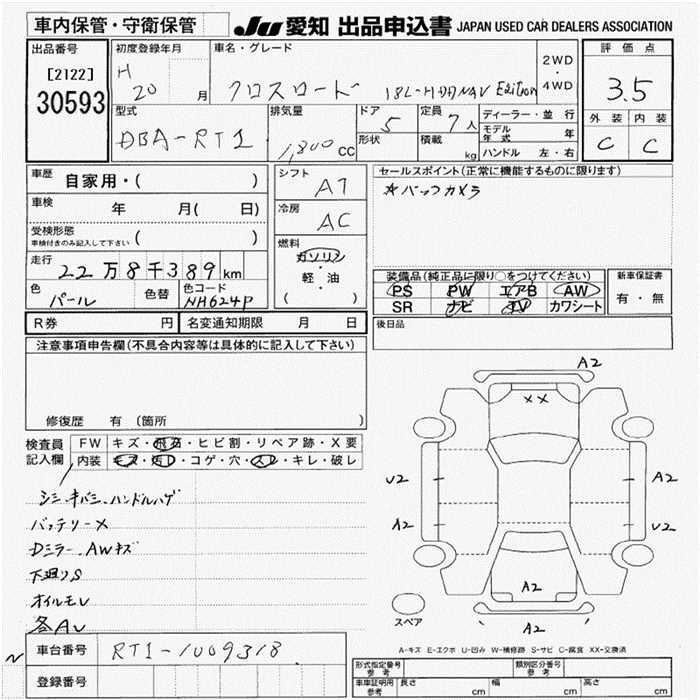 車内保管・守衛保管 JU 愛知 出品申込書 JAPAN USED CAR DEALERS ASSOCIATION
出品番号 初度登録年月 車名・グレード 評価点
[2122] H 20 月 クロスロード 18L-HDDNAV Edition 2WD・4WD 3.5
30593 外装 内装
型式 排気量 ドア 定員 ディーラー・並行 C C
DBA-RT1 1,800 cc 5 7人 モデル年式 年
形状 積載 kg ハンドル 左・右
車歴 自家用・( ) シフト AT セールスポイント(正常に機能するものに限ります)
車検 年 月( 日) 冷房 AC ☆バックカメラ
受検形態 車検付きのみ記入して下さい ( ) 燃料 ガソリン・軽・油 ( )
走行 22万8千389km 装備品(純正品に限り○をつけてください) 新車保証書
色 パール 色替 色コード NH624P PS PW エアB AW 有・無
SR ナビ TV カワシート
R券 円 名変通知期限 月 日 後日品
注意事項申告欄(不具合内容等は具体的に記入して下さい)
修復歴 有 (箇所 )
検査員記入欄 FW キズ・飛石・ヒビ割・リペア跡・X要
内装 キズ・汚れ・コゲ・穴・スレ・キレ・破レ
シミ、キバミ、ハンドルハゲ
バッテリーX
Dミラー、AWキズ
下廻りS
オイルモレ
各AU
A2
XX
U2 A2
A2 U2
A2
スペア A2
A-キズ E-エクボ U-凹み W-補修跡 S-サビ C-腐食 XX-交換済
車台番号 RT1-1009318
登録番号
形式指定番号 参考 類別区分番号 参考
車庫証明用 参考 長さ cm 幅 cm 高さ cm